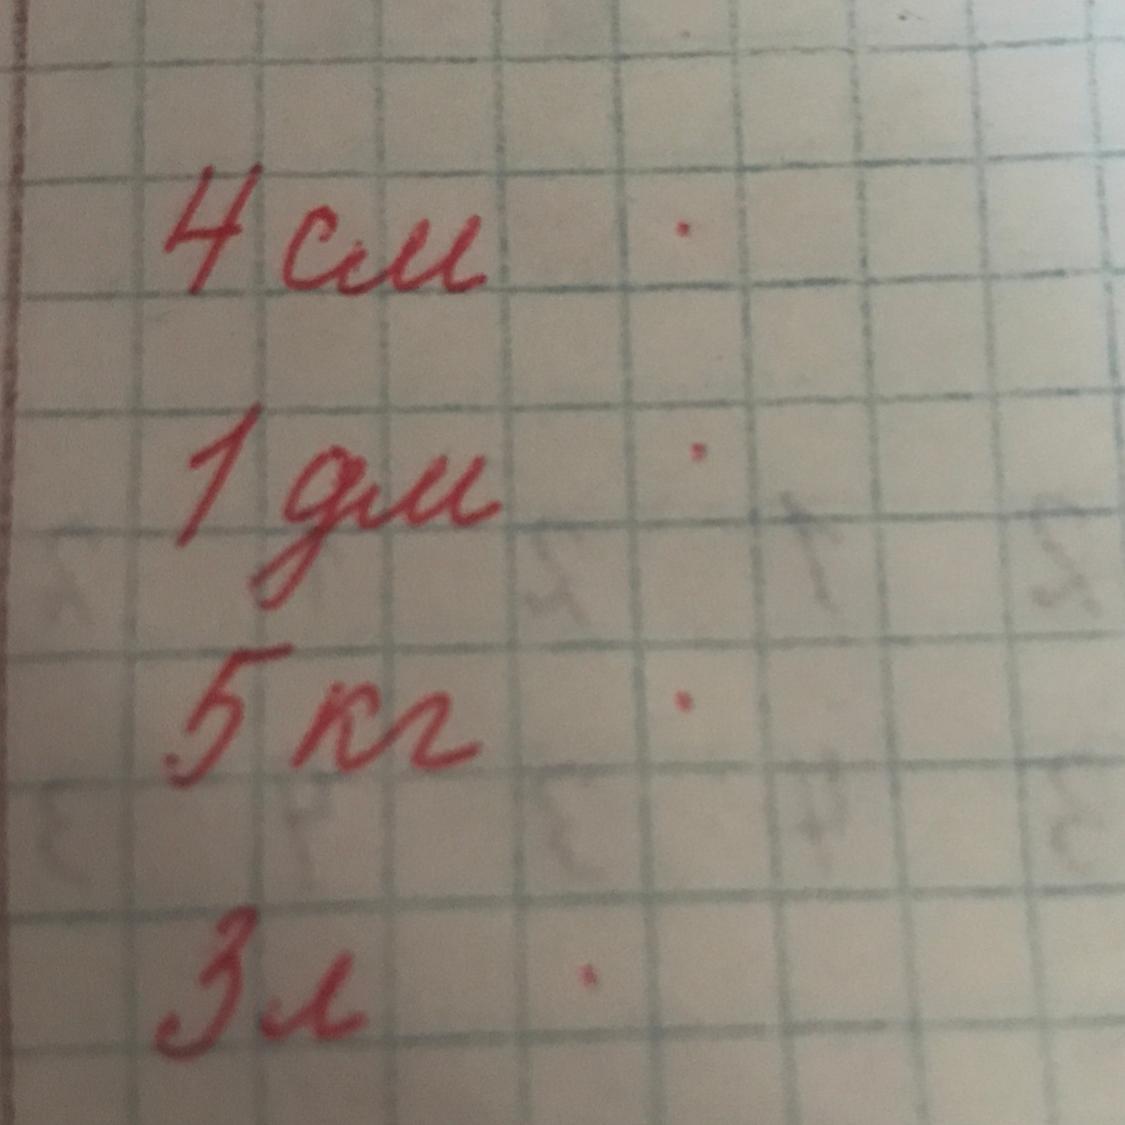 4 см ·
1 дм ·
5 кг ·
3 л ·